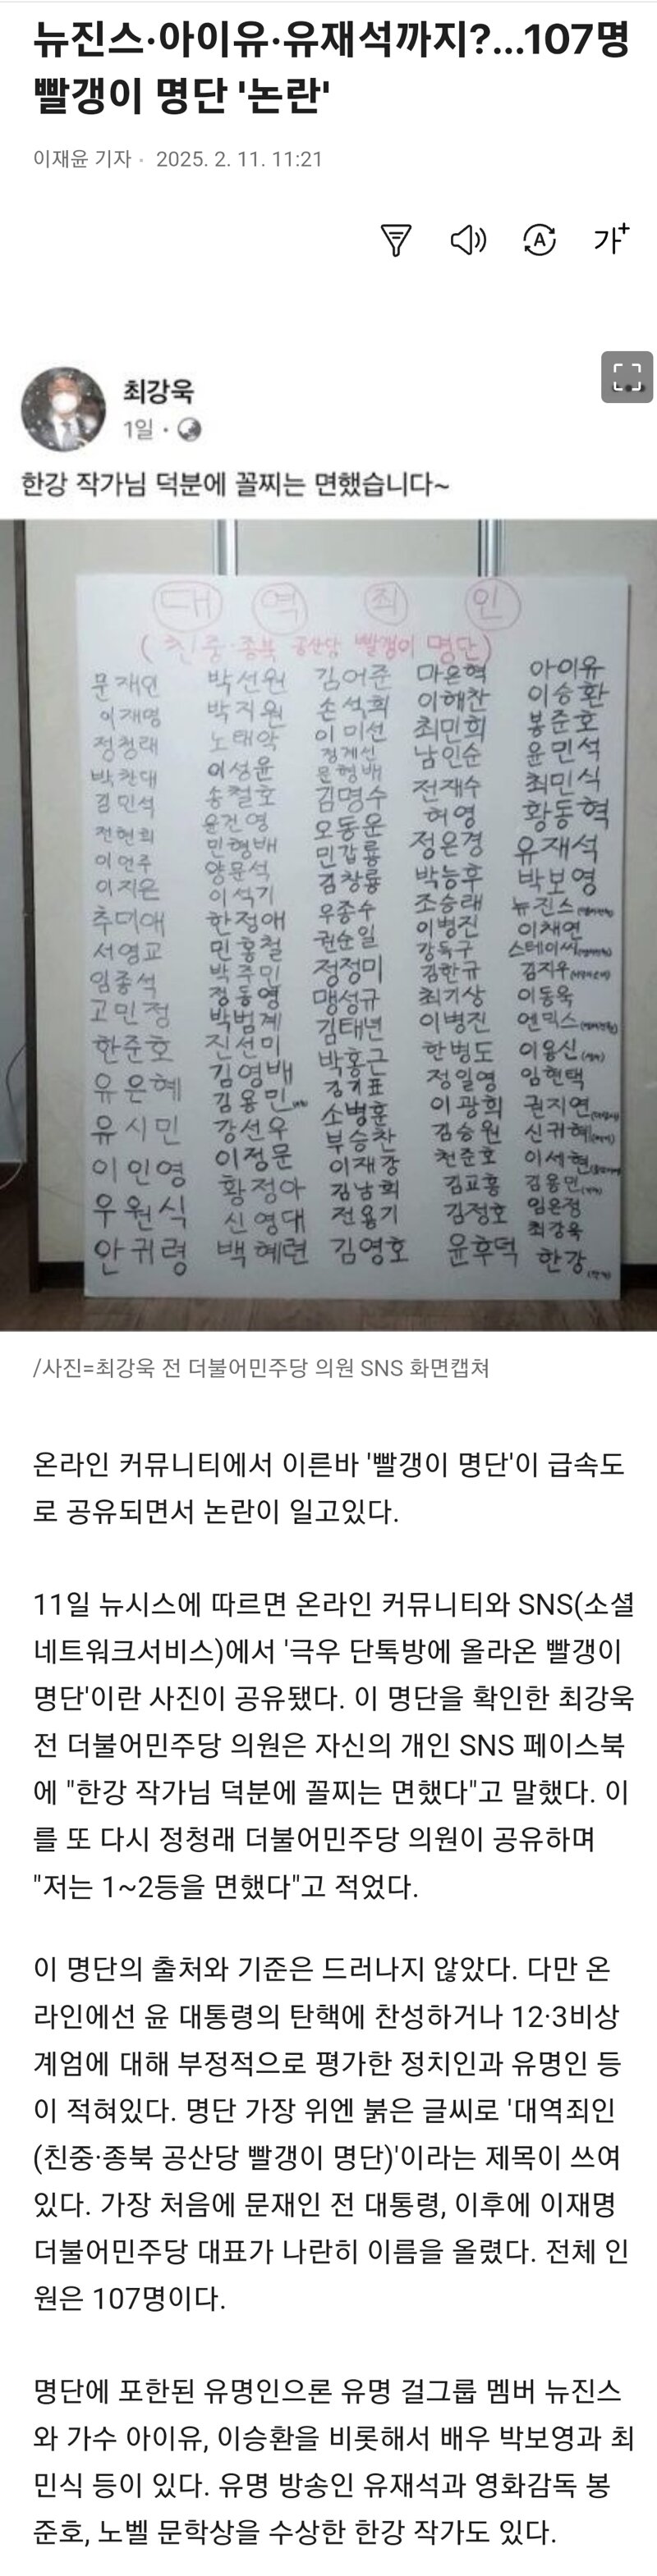 뉴진스·아이유·유재석까지?...107명
빨갱이 명단 '논란'
이재윤 기자 · 2025. 2. 11. 11:21
A 가+
최강욱
1일 ·
한강 작가님 덕분에 꼴찌는 면했습니다~
대 역 죄 인
(친중·종북 공산당 빨갱이 명단)
문재인 박선원 김어준 마은혁 아이유
이재명 박지원 손석희 이해찬 이승환
정청래 노태악 이미선 최민희 봉준호
박찬대 이성윤 정계선 남인순 윤민석
김민석 송철호 문형배 전재수 최민식
전현희 윤건영 김명수 허영 황동혁
이언주 민형배 오동운 정은경 유재석
이지은 양문석 민갑룡 박능후 박보영
추미애 이석기 김창룡 조승래 뉴진스
서영교 한정애 우종수 이병진 이채연
임종석 민홍철 권순일 강득구 스테이씨
고민정 박주민 정정미 김한규 김지우
한준호 정동영 맹성규 최기상 이동욱
유은혜 박범계 김태년 이병진 엔믹스
유시민 진선미 박홍근 한병도 이용신
이인영 김영배 김기표 정일영 임현택
우원식 김용민 소병훈 이광희 권지연
안귀령 강선우 부승찬 김승원 신귀혜
이정문 이재강 천준호 이세현
황정아 김남희 김교흥 김용민
신영대 전용기 김정호 임은정
백혜련 김영호 윤후덕 최강욱
한강
/사진=최강욱 전 더불어민주당 의원 SNS 화면캡쳐
온라인 커뮤니티에서 이른바 '빨갱이 명단'이 급속도
로 공유되면서 논란이 일고있다.
11일 뉴시스에 따르면 온라인 커뮤니티와 SNS(소셜
네트워크서비스)에서 '극우 단톡방에 올라온 빨갱이
명단'이란 사진이 공유됐다. 이 명단을 확인한 최강욱
전 더불어민주당 의원은 자신의 개인 SNS 페이스북
에 "한강 작가님 덕분에 꼴찌는 면했다"고 말했다. 이
를 또 다시 정청래 더불어민주당 의원이 공유하며
"저는 1~2등을 면했다"고 적었다.
이 명단의 출처와 기준은 드러나지 않았다. 다만 온
라인에선 윤 대통령의 탄핵에 찬성하거나 12·3비상
계엄에 대해 부정적으로 평가한 정치인과 유명인 등
이 적혀있다. 명단 가장 위엔 붉은 글씨로 '대역죄인
(친중·종북 공산당 빨갱이 명단)'이라는 제목이 쓰여
있다. 가장 처음에 문재인 전 대통령, 이후에 이재명
더불어민주당 대표가 나란히 이름을 올렸다. 전체 인
원은 107명이다.
명단에 포한된 유명인으론 유명 걸그룹 멤버 뉴진스
와 가수 아이유, 이승환을 비롯해서 배우 박보영과 최
민식 등이 있다. 유명 방송인 유재석과 영화감독 봉
준호, 노벨 문학상을 수상한 한강 작가도 있다.